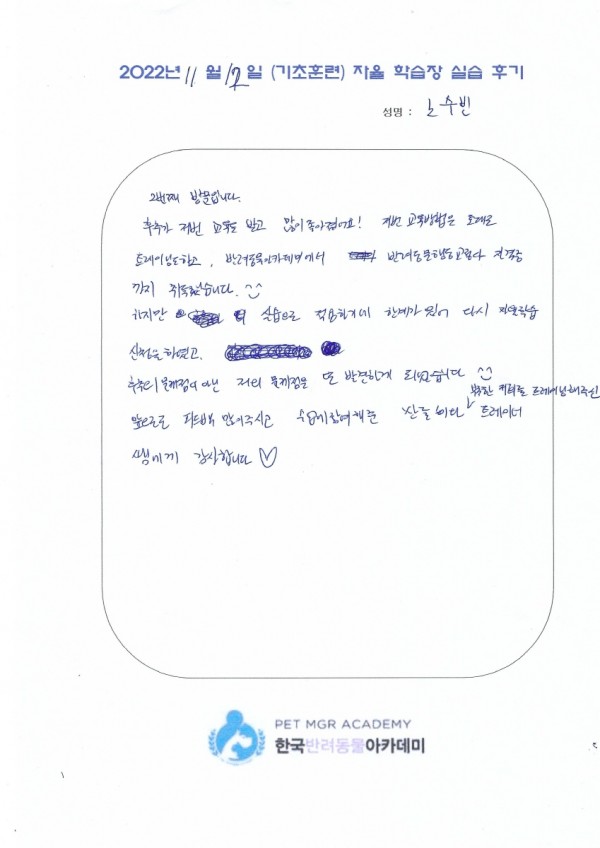 2022년 11월 12일 (기초훈련) 자율 학습장 실습 후기
성명 : 노수빈
2번째 방문입니다.
후추가 저번 교육도 받고 많이 좋아졌어요! 저번 교육방법은 토대로
트레이닝도하고, 반려동물아카데미에서 반려동물행동교정사 자격증
까지 취득했습니다.
하지만 실습으로 적용하기에 한계가 있어 다시 자율학습
신청을 하였고.
후추의 문제점이 아닌 저의 문제점을 또 발견하게 되었습니다
부족한 저희를 트레이닝해주신
앞으로도 피드백 많이주시고 수업에참여해준 산들이와 트레이너
쌤에게 감사합니다♡
PET MGR ACADEMY
한국반려동물아카데미